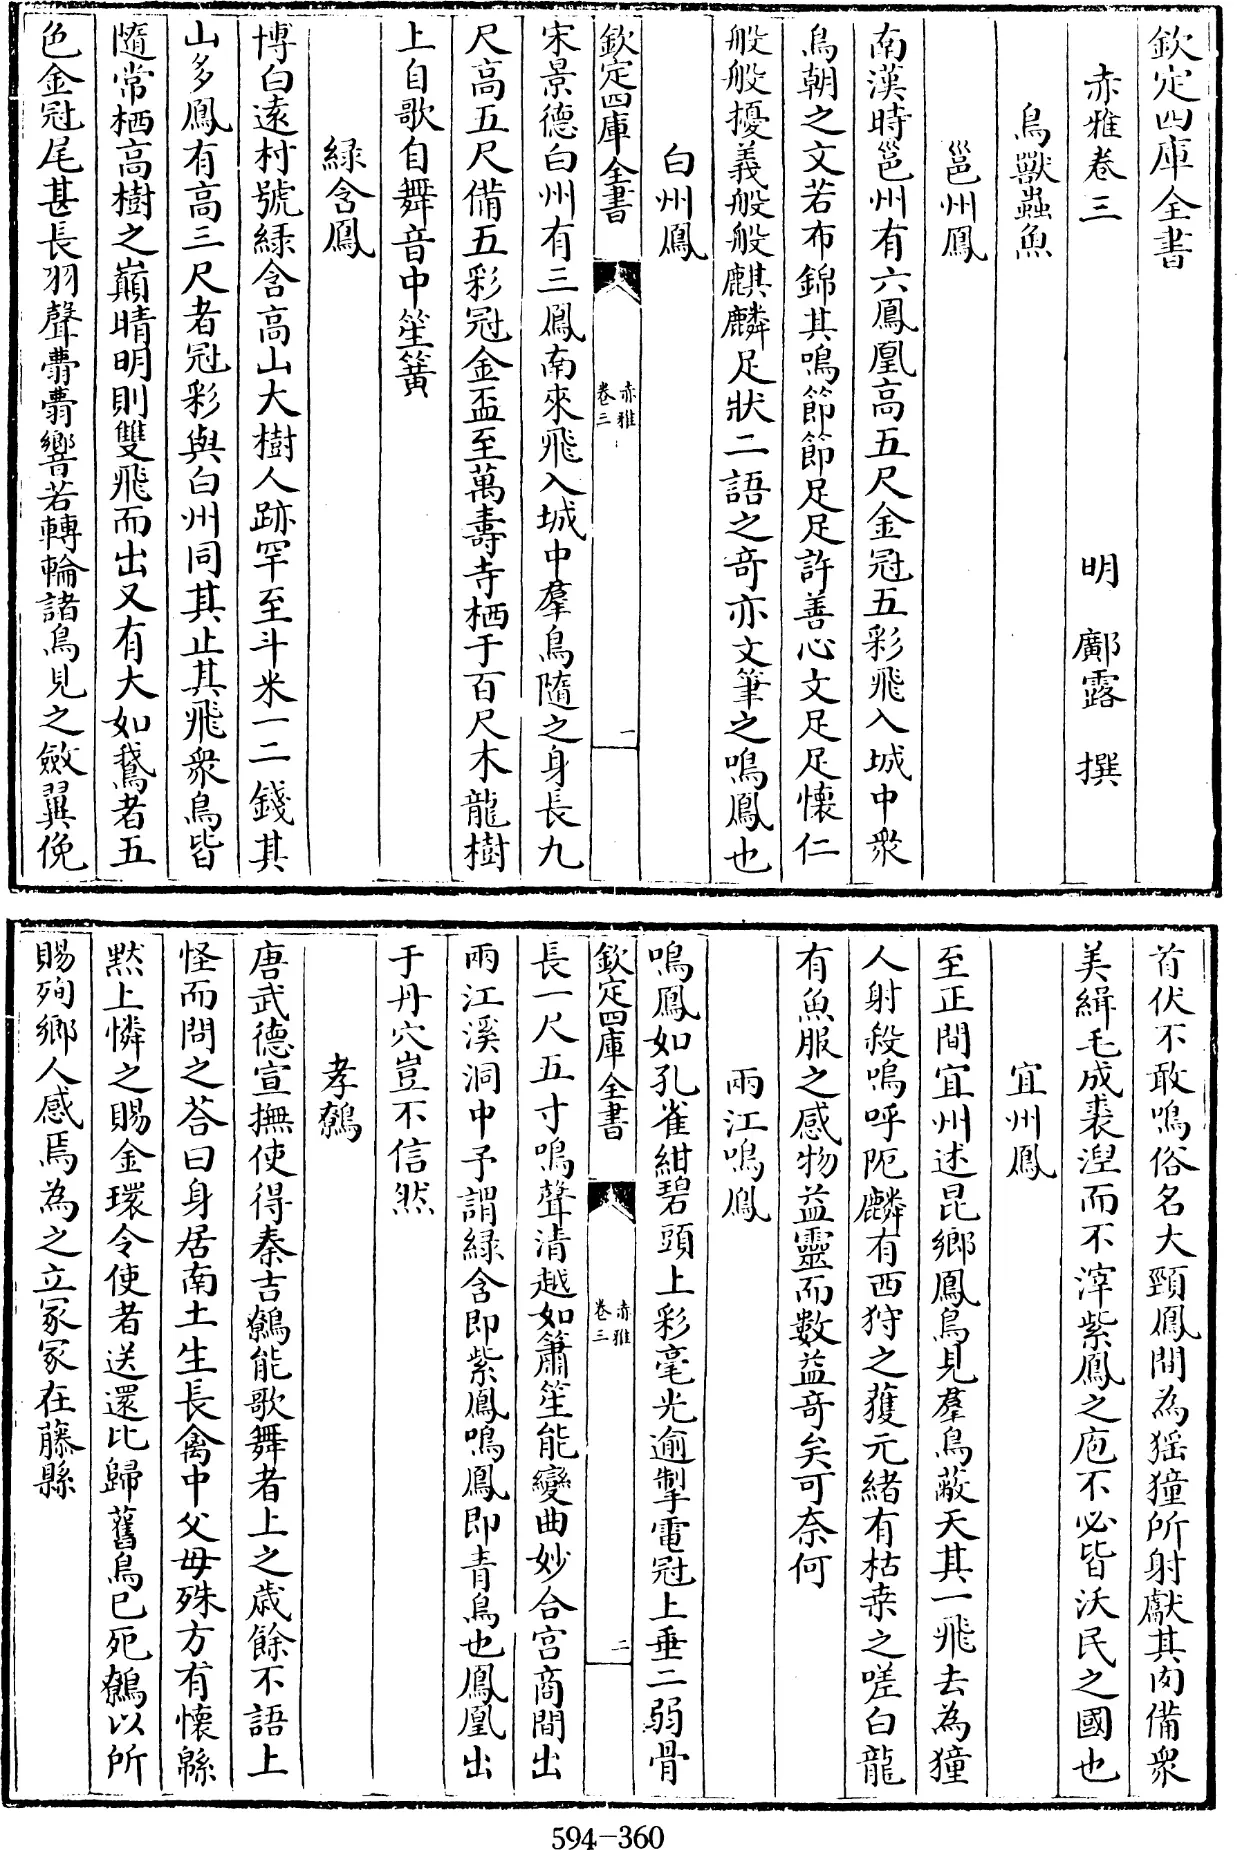 欽定四庫全書
赤雅卷三
明 鄺露 撰
鳥獸蟲魚
邕州鳳
南漢時邕州有六鳳凰高五尺金冠五彩飛入城中衆
鳥朝之文若布錦其鳴節節足足許善心文足足懷仁
般般擾義般般麒麟足狀二語之奇亦文筆之鳴鳳也
白州鳳
欽定四庫全書
赤雅
卷三
一
宋景德白州有三鳳南來飛入城中羣鳥隨之身長九
尺高五尺備五彩冠金盃至萬壽寺栖于百尺木龍樹
上自歌自舞音中笙簧
緑含鳳
博白遠村號緑含高山大樹人跡罕至斗米一二錢其
山多鳳有高三尺者冠彩與白州同其止其飛衆鳥皆
隨常栖高樹之巔晴明則雙飛而出又有大如鵞者五
色金冠尾甚長羽聲翯翯響若轉輪諸鳥見之斂翼俛
首伏不敢鳴俗名大頸鳳間為猺獞所射獻其肉備衆
美緝毛成裘湼而不滓紫鳳之庖不必皆沃民之國也
宜州鳳
至正間宜州述昆鄉鳳鳥見羣鳥蔽天其一飛去為獞
人射殺嗚呼阨麟有西狩之獲元緒有枯桒之嗟白龍
有魚服之感物益靈而數益奇矣可奈何
兩江鳴鳳
鳴鳳如孔雀紺碧頭上彩毫光逾掣電冠上垂二弱骨
欽定四庫全書
赤雅
卷三
二
長一尺五寸鳴聲清越如簫笙能變曲妙合宫商間出
兩江溪洞中予謂緑含即紫鳳鳴鳳即青鳥也鳳凰出
于丹穴豈不信然
孝鷯
唐武德宣撫使得秦吉鷯能歌舞者上之歳餘不語上
怪而問之荅曰身居南土生長禽中父母殊方有懷緜
黙上憐之賜金環令使者送還比歸舊鳥已死鷯以所
賜殉鄉人感焉為之立冢冢在藤縣
594-360